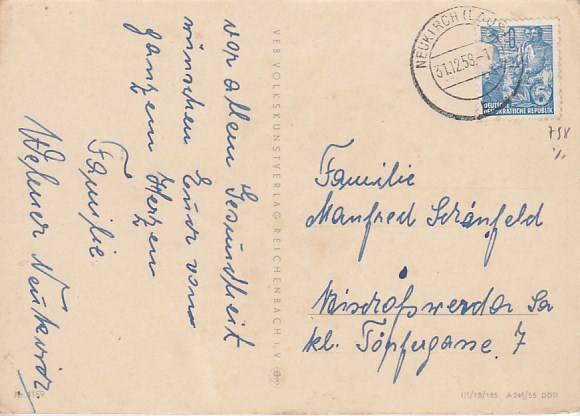 vor allem Gesundheit
wünschen Euch von
ganzem Herzen
Familie
Werner Neukirch
VEB VOLKSKUNSTVERLAG REICHENBACH I. V.
NEUKIRCH (LAUS
31.12.58.-1
DEUTSCHE
DEMOKRATISCHE REPUBLIK
Familie
Manfred Schönfeld
Bischofswerda Sa
kl. Töpfergasse 7
III/18/185 A 246/55 DDR